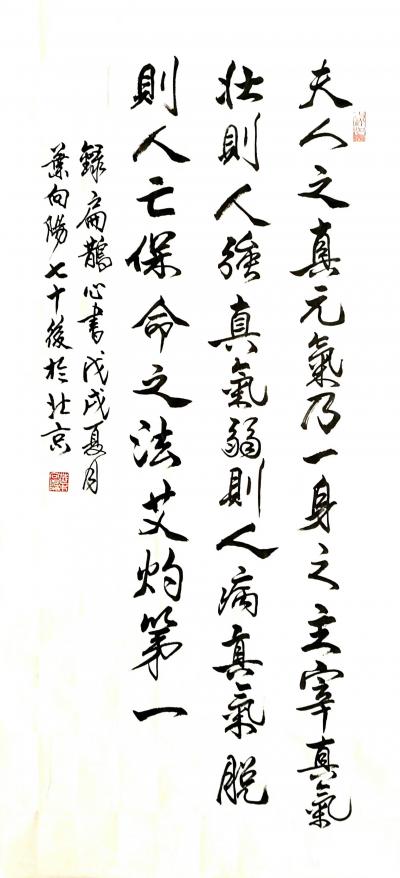 夫人之真元氣乃一身之主宰真氣
壯則人強真氣弱則人病真氣脫
則人亡保命之法艾灼第一
錄扁鵲心書戊戌夏月
葉向勝七十後於北京